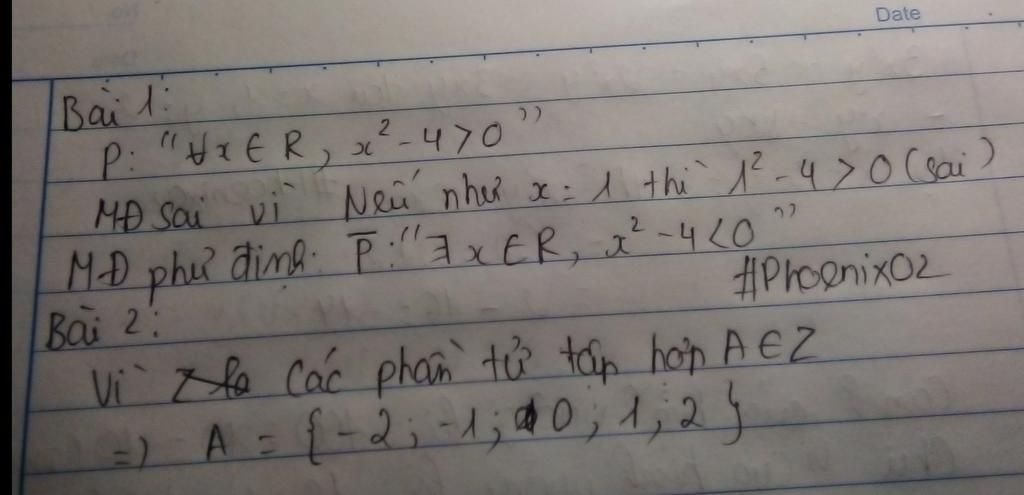 Date
Bài 1:
P: "∀x ∈ R, x² - 4 > 0"
MĐ sai vì Nếu như x = 1 thì 1² - 4 > 0 (sai)
MĐ phủ định: P̅: "∃x ∈ R, x² - 4 < 0"
#Phoenix02
Bài 2:
Vì các phần tử tập hợp A ∈ Z
=> A = {-2; -1; 0; 1; 2}